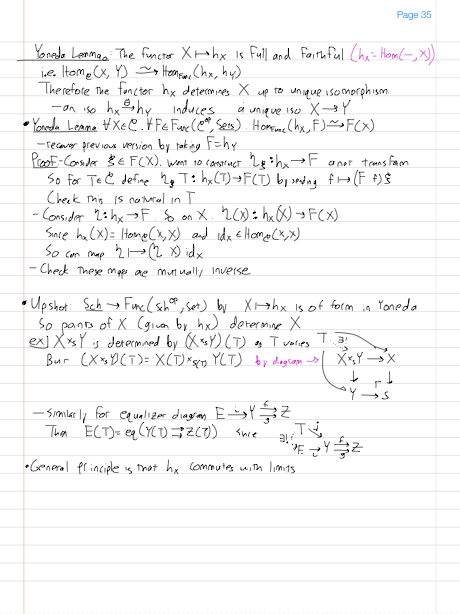 Page 35
Yoneda Lemma: The functor X ↦ h_X is Full and Faithful (h_X = Hom(-, X))
i.e. Hom_C(X, Y) ≃→ Hom_Func(h_X, h_Y)
Therefore the functor h_X determines X up to unique isomorphism.
- an iso h_X ≃→ h_Y induces a unique iso X → Y
• Yoneda Lemma: ∀X∈C, ∀F∈Func(C^op, Sets). Hom_Func(h_X, F) ≃→ F(X)
- recover previous version by taking F = h_Y
Proof - Consider ξ ∈ F(X). want to construct η_ξ : h_X → F a nat transform
So for T∈C define η_ξ T : h_X(T) → F(T) by sending f ↦ (F f) ξ
Check this is natural in T
- Consider η : h_X → F. So on X. η(X) : h_X(X) → F(X)
Since h_X(X) = Hom_C(X,X) and id_X ∈ Hom_C(X,X)
So can map η ↦ (η X) id_X
- Check these maps are mutually inverse
• Upshot: Sch → Func(Sch^op, Set) by X ↦ h_X is of form in Yoneda
So points of X (given by h_X) determine X
ex] X ×_S Y is determined by (X ×_S Y)(T) as T varies
But (X ×_S Y)(T) = X(T) ×_S(T) Y(T) by diagram →
T ∃!
X ×_S Y → X
↓ ↓
Y → S
- Similarly for equalizer diagram E →^i Y ⇉^f_g Z
Then E(T) = eq(Y(T) ⇉ Z(T)) since
∃! T j
E →_i Y ⇉^f_g Z
• General principle is that h_X commutes with limits